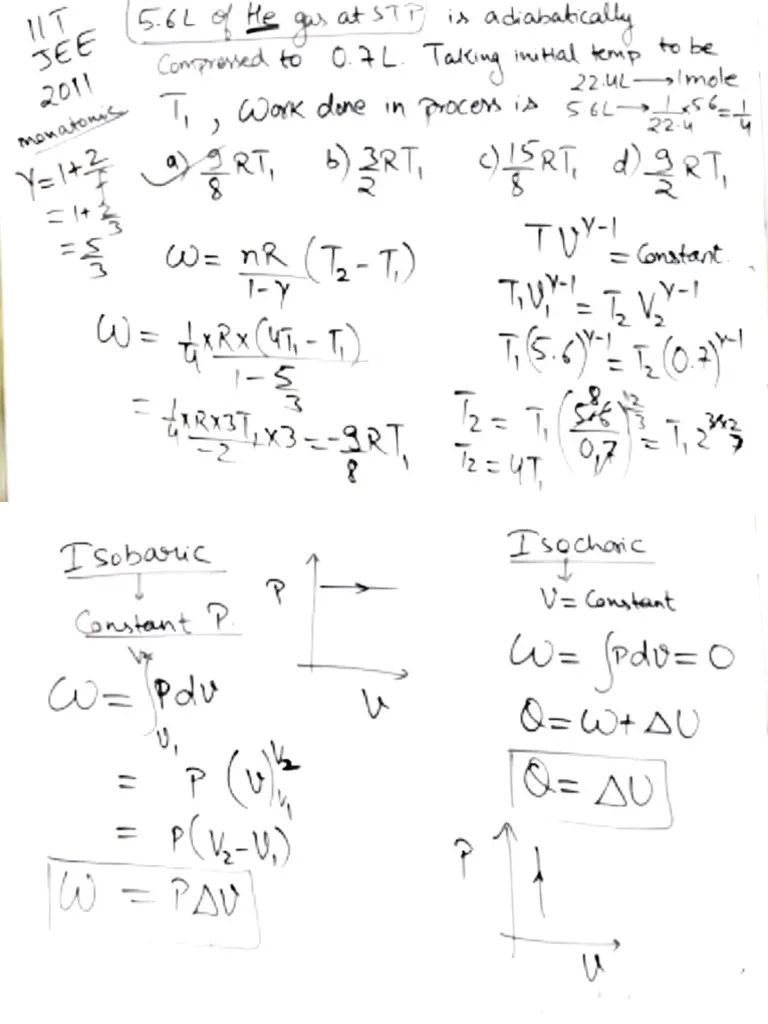 IIT
JEE
2011
5.6L of He gas at STP is adiabatically
Compressed to 0.7L. Taking initial temp to be
T₁, Work done in process is
22.4L → 1mole
5.6L → 1/22.4 × 5.6 = 1/4
monatomic
γ = 1+2/f
= 1+2/3
= 5/3
a) 9/8 RT₁ b) 3/2 RT₁ c) 15/8 RT₁ d) 9/2 RT₁
W = nR/1-γ (T₂ - T₁)
W = 1/4 × R × (4T₁ - T₁) / 1 - 5/3
= 1/4 × R × 3T₁ / -2 × 3 = -9/8 RT₁
TV^γ-1 = Constant.
T₁V₁^γ-1 = T₂V₂^γ-1
T₁(5.6)^γ-1 = T₂(0.7)^γ-1
T₂ = T₁ (5.6/0.7)^2/3 = T₁ 2^3×2/3
T₂ = 4T₁
Isobaric
Constant P.
P
V
W = ∫ Pdv
V₂
V₁
= P (V)^V₂_V₁
= P(V₂ - V₁)
W = PΔV
Isochoric
V = Constant
W = ∫Pdv = 0
Q = W + ΔU
Q = ΔU
P
V